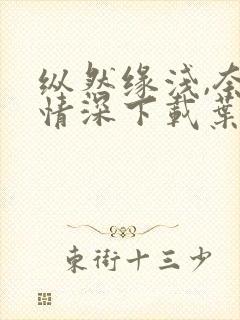 纵然缘浅,奈
情深下載葉
東街十三少